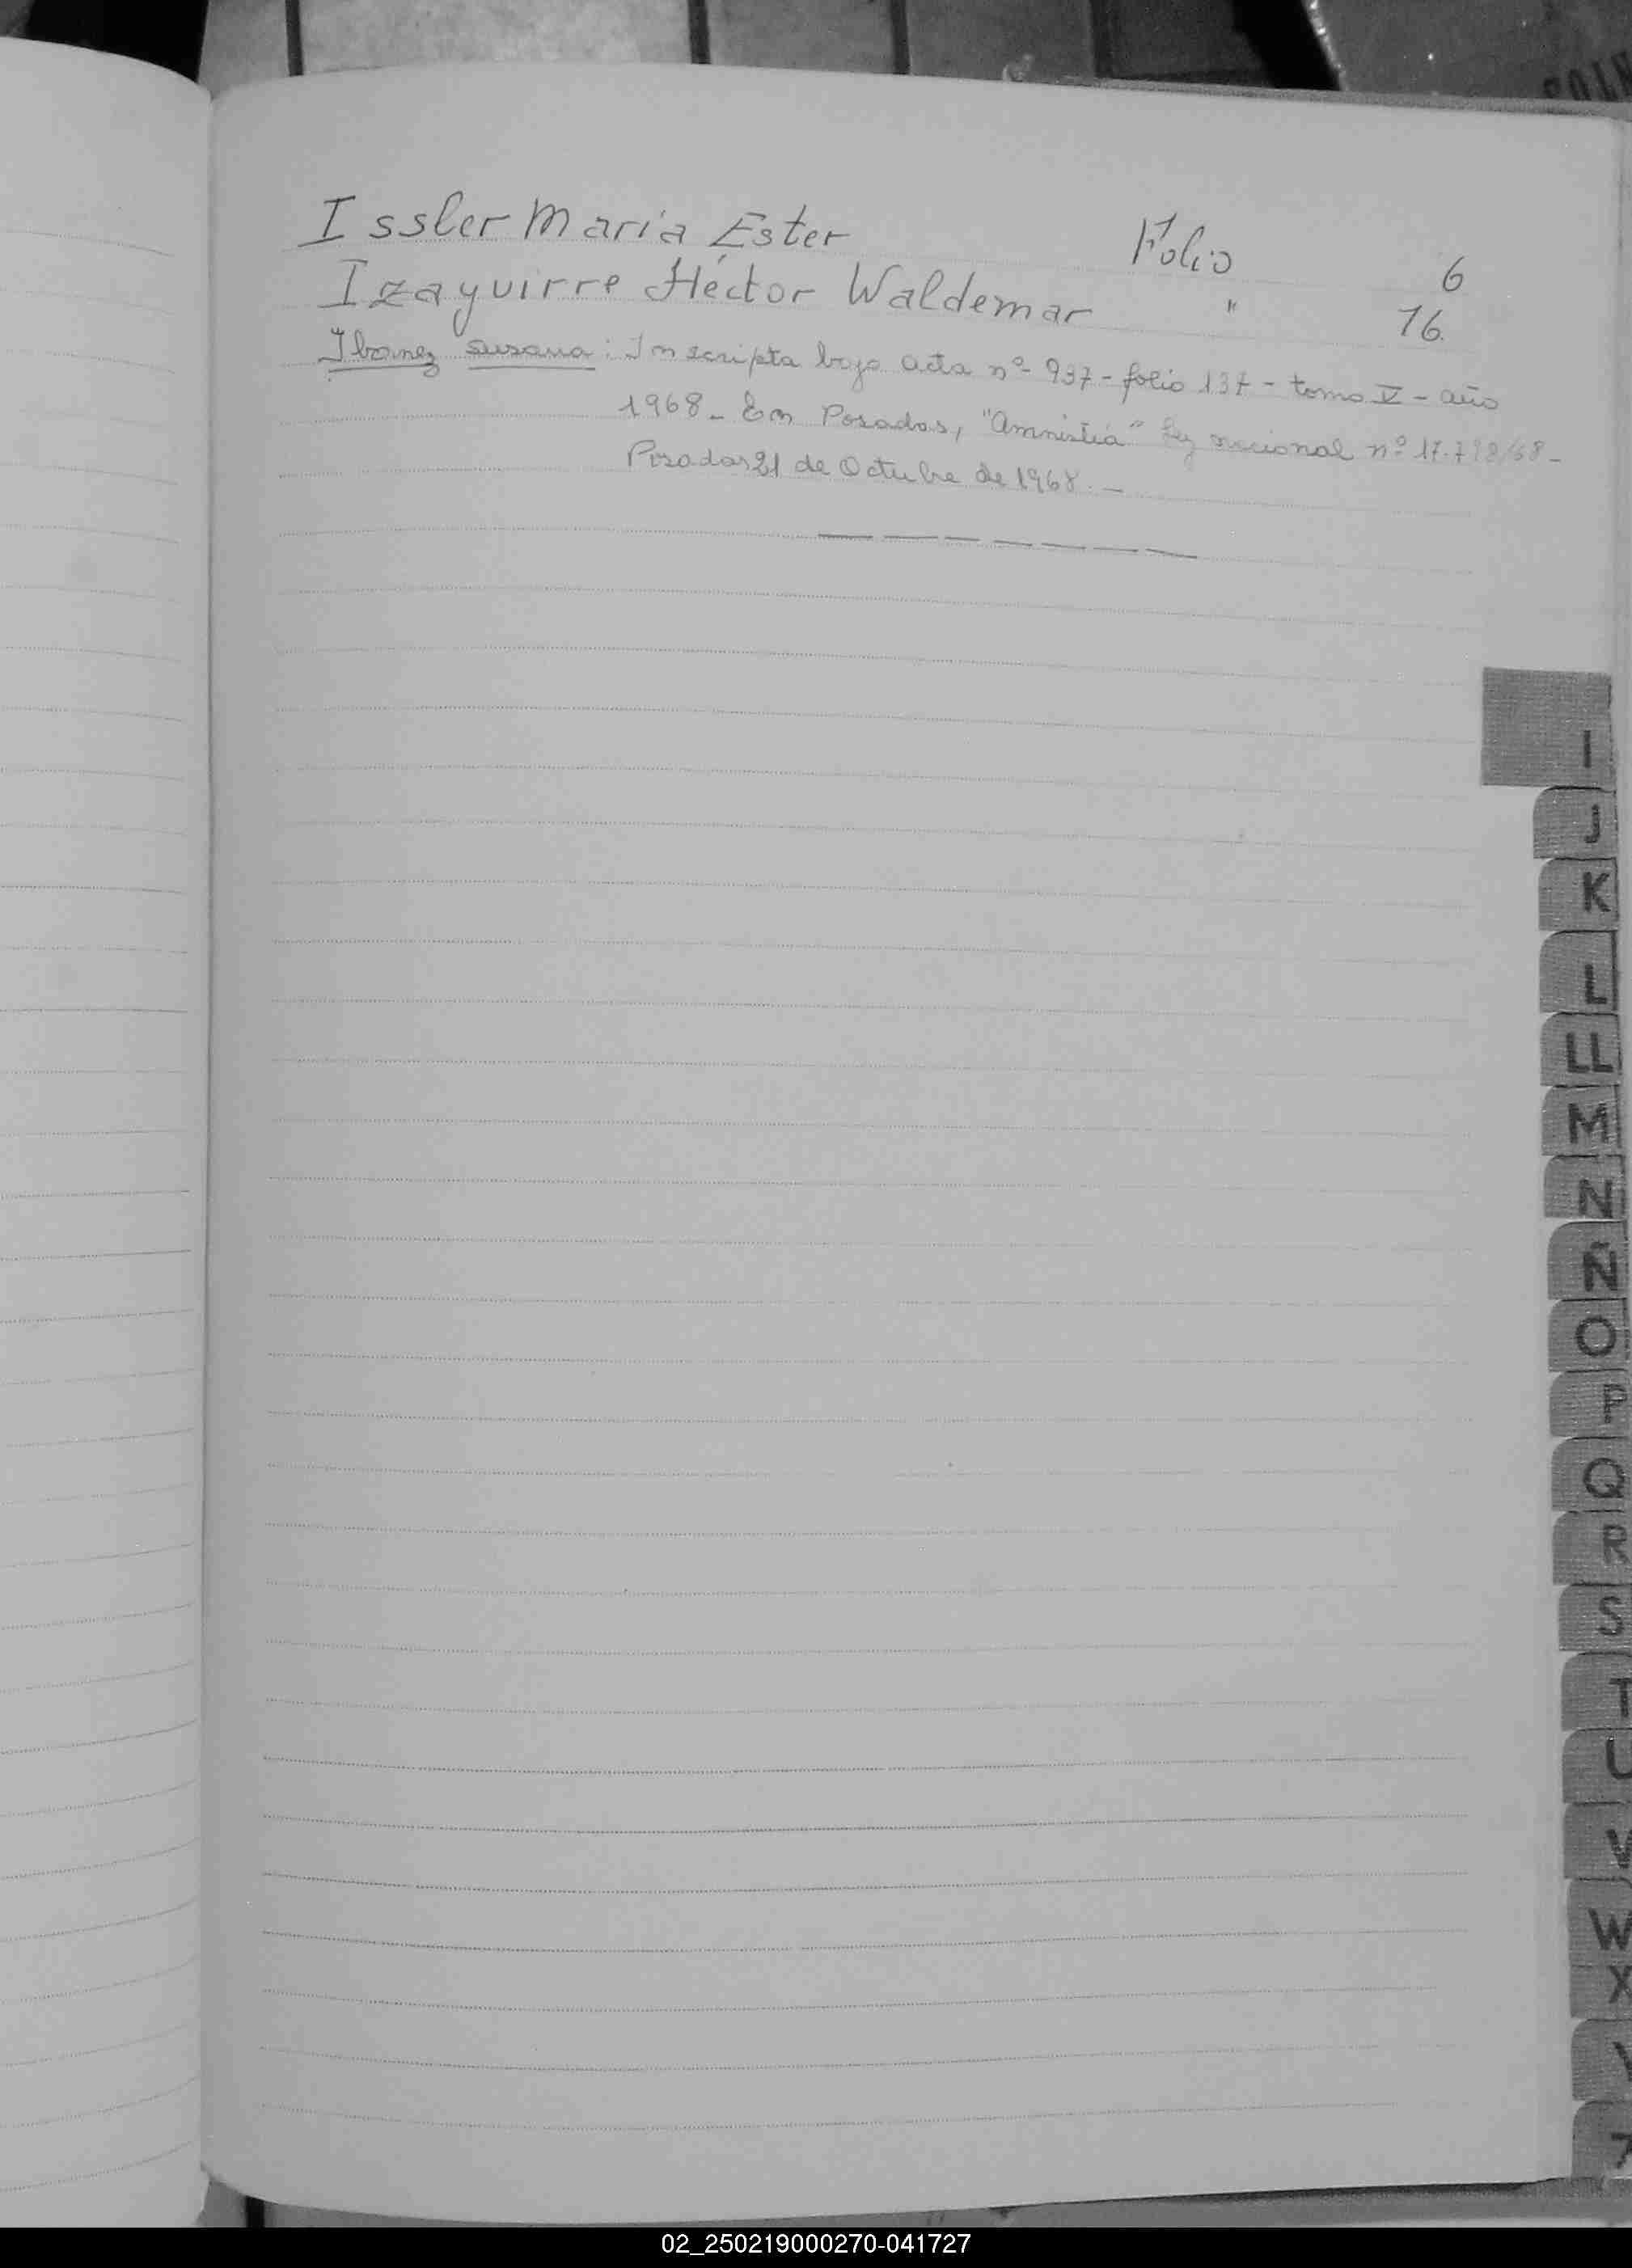 Issler Maria Ester Folio 6
Izayuirre Héctor Waldemar " 16.
Ibanez susana: Inscripta bajo acta nº 937 - folio 137 - tomo V - año
1968 - En Posadas, "Amnistia" Ley nacional nº 17.
Posadas 21 de Octubre de 1968. —
I
J
K
L
LL
M
N
Ñ
O
P
Q
R
S
T
U
V
W
X
Y
02_250219000270-041727